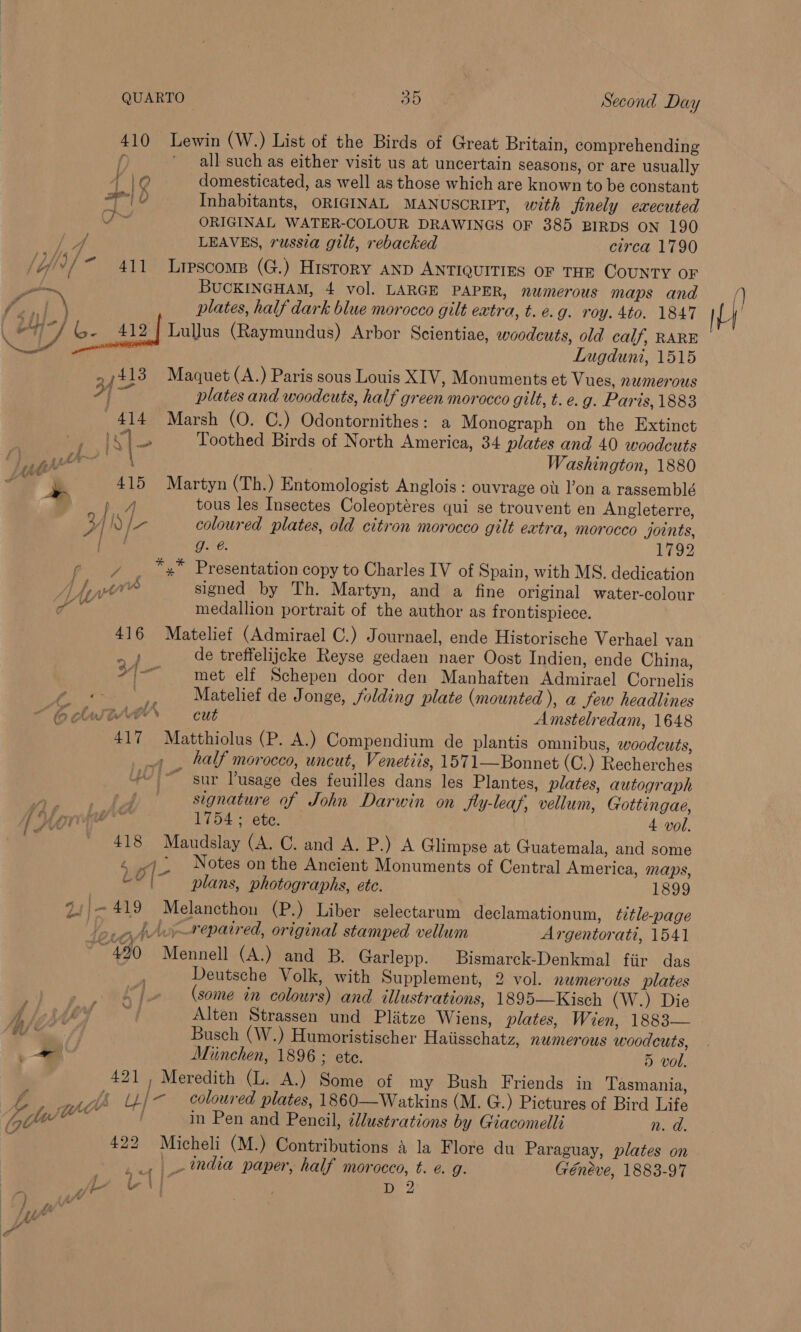 QUARTO 35 Second Day
410 Lewin (W.) List of the Birds of Great Britain, comprehending
all such as either visit us at uncertain seasons, or are usually
domesticated, as well as those which are known to be constant
Inhabitants, ORIGINAL MANUSCRIPT, with finely executed
ORIGINAL WATER-COLOUR DRAWINGS OF 385 BIRDS ON 190
LEAVES, russia gilt, rebacked circa 1790
411 LIPSCOMB (G.) HISTORY AND ANTIQUITIES OF THE COUNTY OF
BUCKINGHAM, 4 vol. LARGE PAPER, numerous maps and
plates, half dark blue morocco gilt extra, t. e. g. roy. 4to. 1847
412 Lullus (Raymundus) Arbor Scientiae, woodcuts, old calf, RARE
Lugduni, 1515
413 Maquet (A.) Paris sous Louis XIV, Monuments et Vues, numerous
plates and woodcuts, half green morocco gilt, t. e. g. Paris, 1883
414 Marsh (O. C.) Odontornithes: a Monograph on the Extinct
Toothed Birds of North America, 34 plates and 40 woodcuts
Washington, 1880
415 Martyn (Th.) Entomologist Anglois: ouvrage où l'on a rassemblé
tous les Insectes Coleoptères qui se trouvent en Angleterre,
coloured plates, old citron morocco gilt extra, morocco joints,
g. e. 1792
*** Presentation copy to Charles IV of Spain, with MS. dedication
signed by Th. Martyn, and a fine original water-colour
medallion portrait of the author as frontispiece.
416 Matelief (Admirael C.) Journael, ende Historische Verhael van
de treffelijcke Reyse gedaen naer Oost Indien, ende China,
met elf Schepen door den Manhaften Admirael Cornelis
Matelief de Jonge, folding plate (mounted), a few headlines
cut Amstelredam, 1648
417 Matthiolus (P. A.) Compendium de plantis omnibus, woodcuts,
half morocco, uncut, Venetiis, 1571—Bonnet (C.) Recherches
sur l'usage des feuilles dans les Plantes, plates, autograph
signature of John Darwin on fly-leaf, vellum, Gottingae,
1754; etc. 4 vol.
418 Maudslay (A. C. and A. P.) A Glimpse at Guatemala, and some
Notes on the Ancient Monuments of Central America, maps,
plans, photographs, etc. 1899
419 Melancthon (P.) Liber selectarum declamationum, title-page
repaired, original stamped vellum Argentorati, 1541
420 Mennell (A.) and B. Garlepp. Bismarck-Denkmal für das
Deutsche Volk, with Supplement, 2 vol. numerous plates
(some in colours) and illustrations, 1895—Kisch (W.) Die
Alten Strassen und Plätze Wiens, plates, Wien, 1883—
Busch (W.) Humoristischer Haüsschatz, numerous woodcuts,
München, 1896; etc. 5 vol.
421 Meredith (L. A.) Some of my Bush Friends in Tasmania,
coloured plates, 1860—Watkins (M. G.) Pictures of Bird Life
in Pen and Pencil, illustrations by Giacomelli n. d.
422 Micheli (M.) Contributions à la Flore du Paraguay, plates on
india paper, half morocco, t. e. g. Génève, 1883-97
D 2